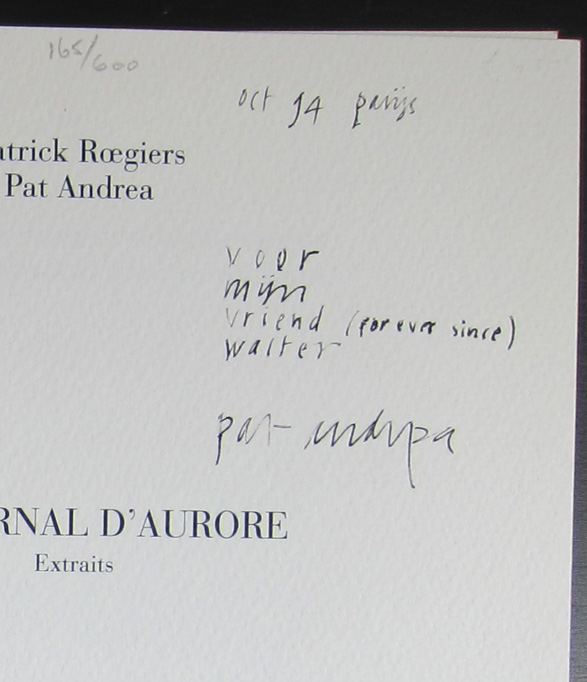 165/600
oct 94 parijs
atrick Rœgiers
Pat Andrea
voor
mijn
vriend (for ever since)
walter
pat andrea
RNAL D'AURORE
Extraits